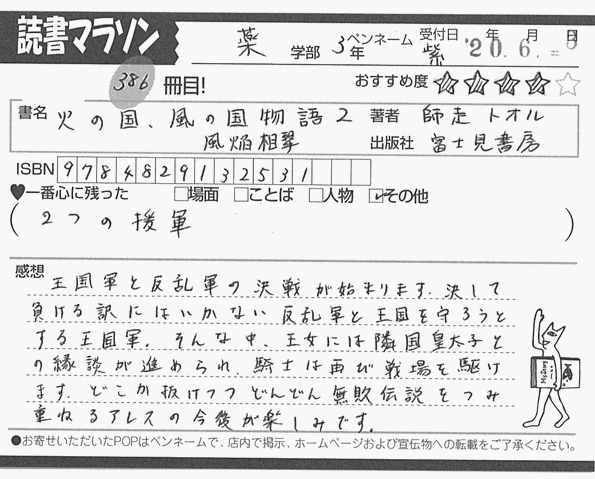 読書マラソン 薬 学部 3年 ペンネーム 紫 受付日 '20.6.-9 年 月 日
386 冊目! おすすめ度 ★★★★☆
書名 火の国、風の国物語2 著者 師走トオル
風焔相撃 出版社 富士見書房
ISBN 9784829132531
♥一番心に残った □場面 □ことば □人物 ☑その他
(2つの援軍)
感想 王国軍と反乱軍の決戦が始まります。決して
負ける訳にはいかない反乱軍と王国を守ろうと
する王国軍。そんな中、王女には隣国皇太子と
の縁談が進められ、騎士は再び戦場を駆け
ます。どこか抜けつつどんどん無敗伝説をつみ
重ねるアレスの今後が楽しみです。
●お寄せいただいたPOPはペンネームで、店内で掲示、ホームページおよび宣伝物への転載をご了承ください。